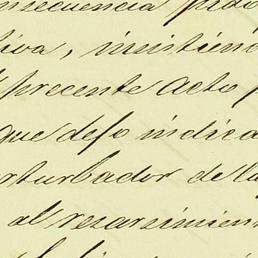 nsecuencia pido
tiva, insistienc
precente acto p
que defo indica
rturbador de la
al resarcimient